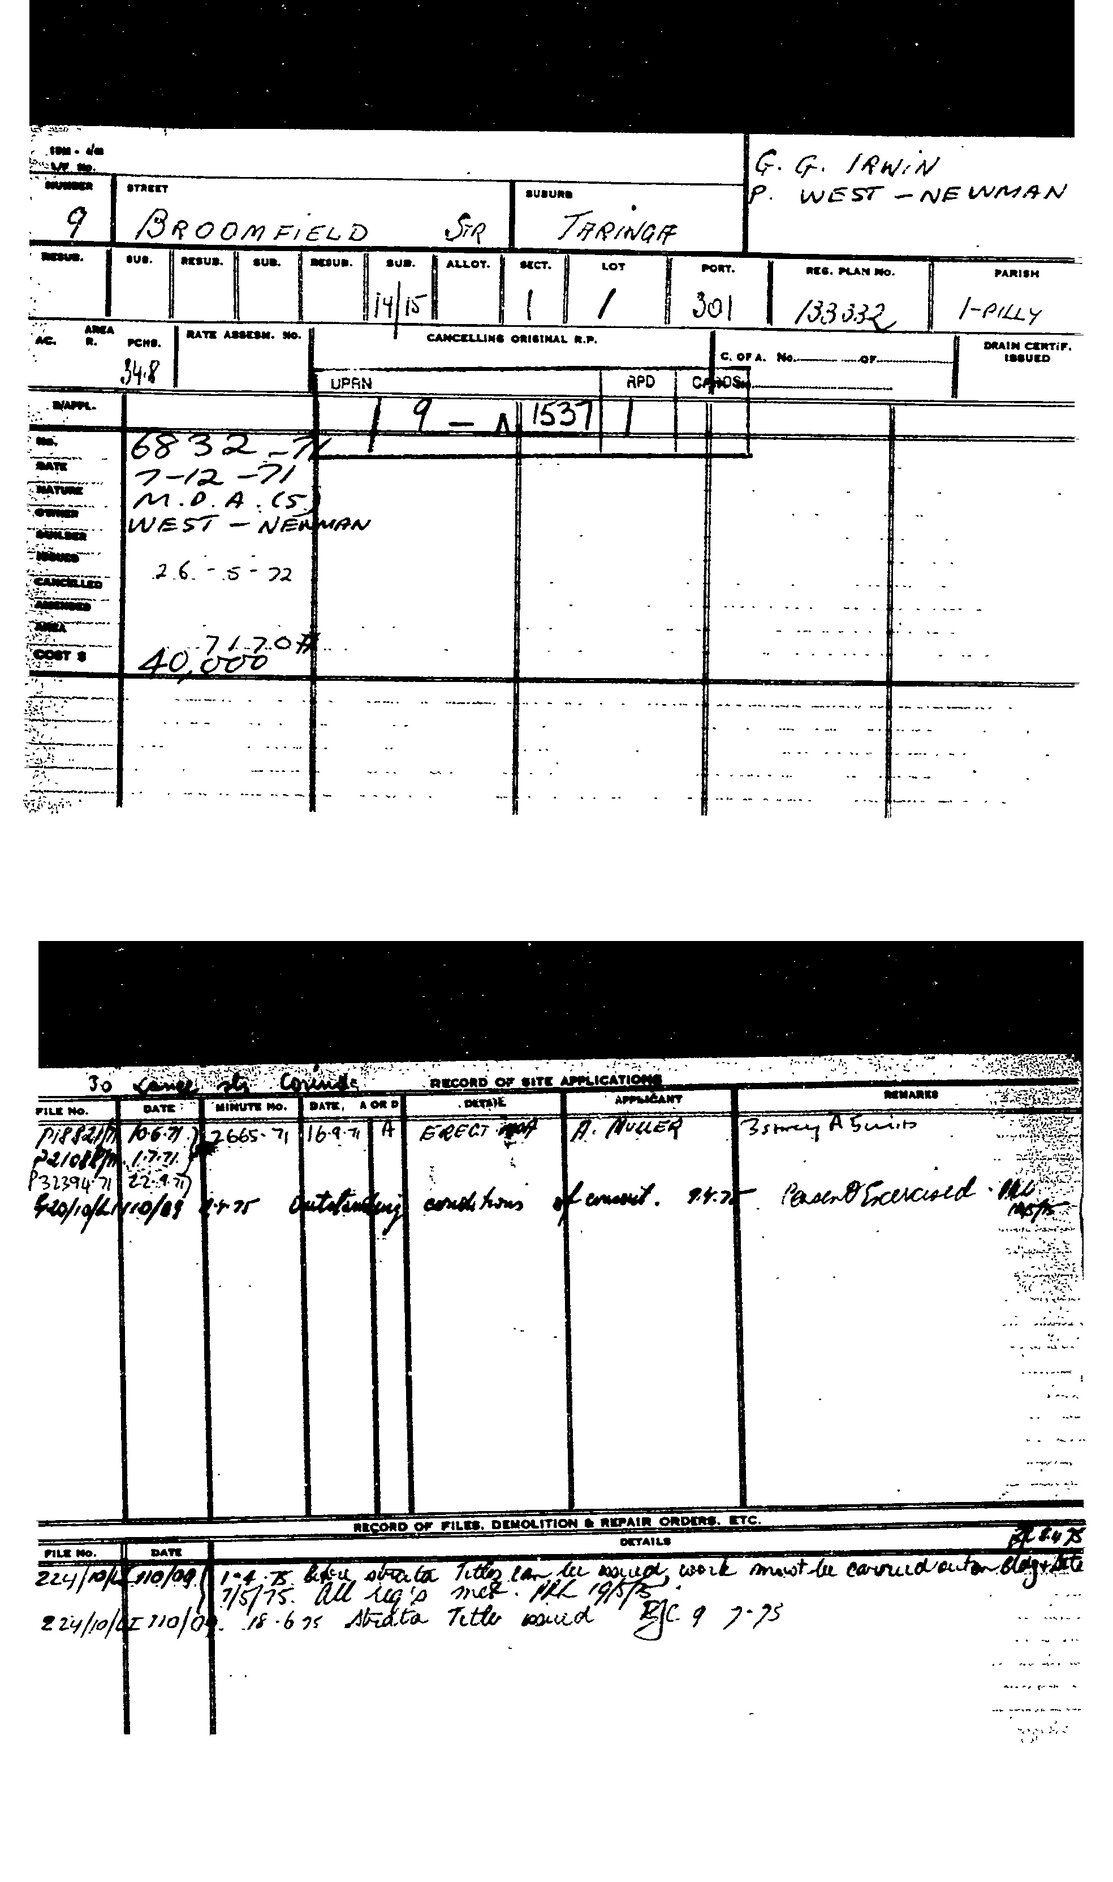 G. G. IRWIN
P. WEST-NEWMAN
NUMBER STREET SUBURB
9 BROOMFIELD STR TARINGA
RESUB. SUB. RESUB. SUB. RESUB. SUB. ALLOT. SECT. LOT PORT. REG. PLAN NO. PARISH
14/15 1 1 301 133332 I-PILLY
AREA RATE ASSESM. NO. CANCELLING ORIGINAL R.P. DRAIN CERTIF. ISSUED
AC. R. PCHS. C. OF A. No. OF
34.8
UPRN RPD CARDS
B/APPL. 1 9 - 1537 1
No. 6832-71
DATE 7-12-71
NATURE M.D.A. (5)
OWNER WEST-NEWMAN
BUILDER
ISSUED
CANCELLED 26-5-72
AMENDED
AREA 7170
COST $ 40,000
30 RECORD OF SITE APPLICATIONS
FILE No. DATE MINUTE NO. DATE, A OR D DETAIL APPLICANT REMARKS
P1882/71 10.6.71 2665.71 16.9.71 A ERECT A. MULLER 3 storey 5 units
1.7.71
P32394.71 22.9.71
110/09 Outstanding conditions of consent. 9.4.75 Exercised
RECORD OF FILES, DEMOLITION & REPAIR ORDERS, ETC.
FILE No. DATE DETAILS
110/09 1-4-75 Before strata Titles can be issued, work must be carried out on Bldg & Site
7/5/75. All req's met. 19/5/75
110/09. 18.6.75 Strata Titles issued 9 7-75